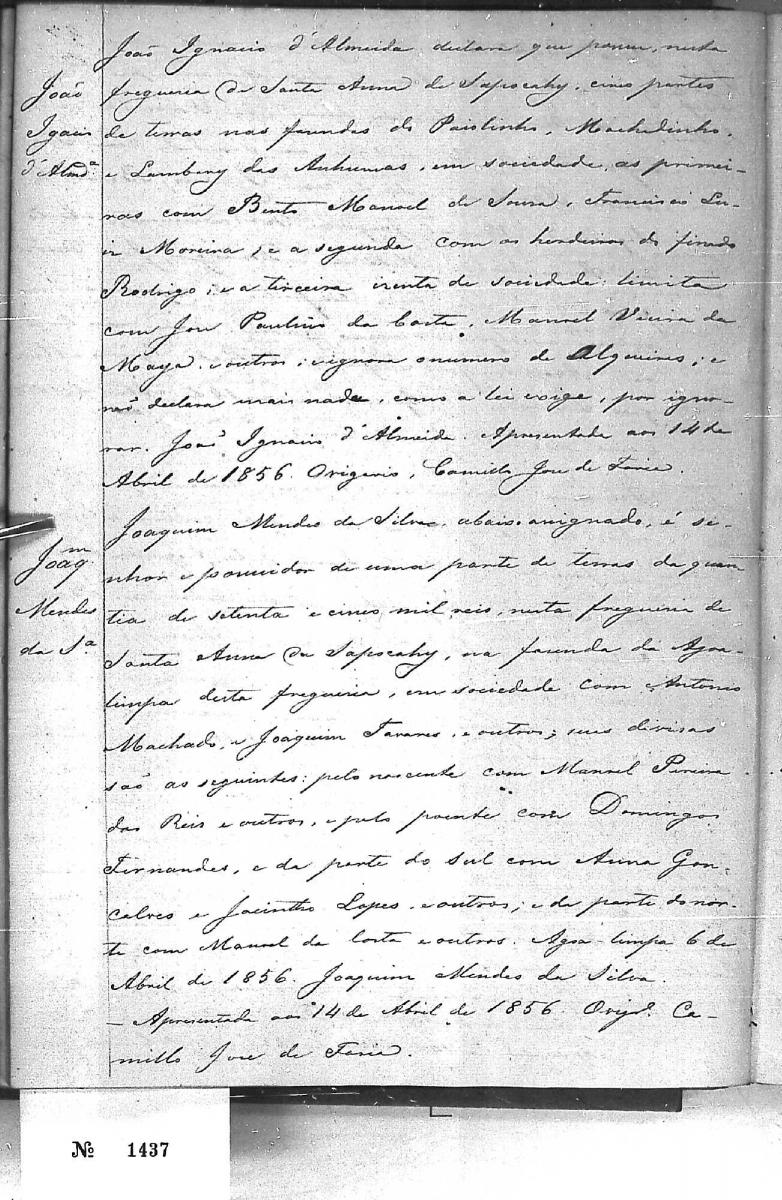 João Ignacio d'Almeida declara que possue, nesta
freguesia de Santa Anna de Sapocahy, cinco partes
de terras nas fasendas do Paiolinho, Machadinho,
e Lambary das Anhumas, em sociedade, as primei-
ras com Bento Manoel de Sousa, Francisco Lu-
iz Moreira; e a segunda com os herdeiros do finado
Rodrigo; e a terceira izenta de sociedade: limita
com Jose Paulino da Costa, Manoel Vieira da
Maya, e outros; e ignora o numero de Alqueires; e
não declara mais nada, como a lei exige, por igno-
rar. João Ignacio d'Almeida. Apresentada aos 14 de
Abril de 1856. O vigario, Camillo Jose de Faria.
João
Igacio
d'Almdª
Joaquim Mendes da Silva, abaixo assignado, é se-
nhor e possuidor de uma parte de terras da quan
tia de setenta e cinco mil reis, nesta freguesia de
Santa Anna de Sapocahy, na fasenda da Agoa-
limpa desta freguesia, em sociedade com Antonio
Machado, e Joaquim Tavares, e outros; suas divisas
são as seguintes: pelo nascente com Manoel Pereira
dos Reis e outros, e pelo poente com Domingos
Fernandes, e da parte do sul com Anna Gon-
calves e Jacintho Lopes, e outros; e da parte do nor-
te com Manoel da Costa e outros. Agoa-limpa 6 de
Abril de 1856. Joaquim Mendes da Silva.
— Apresentada aos 14 de Abril de 1856. O vigº. Ca-
millo Jose de Faria.
Joaqm
Mendes
da Sª
№ 1437